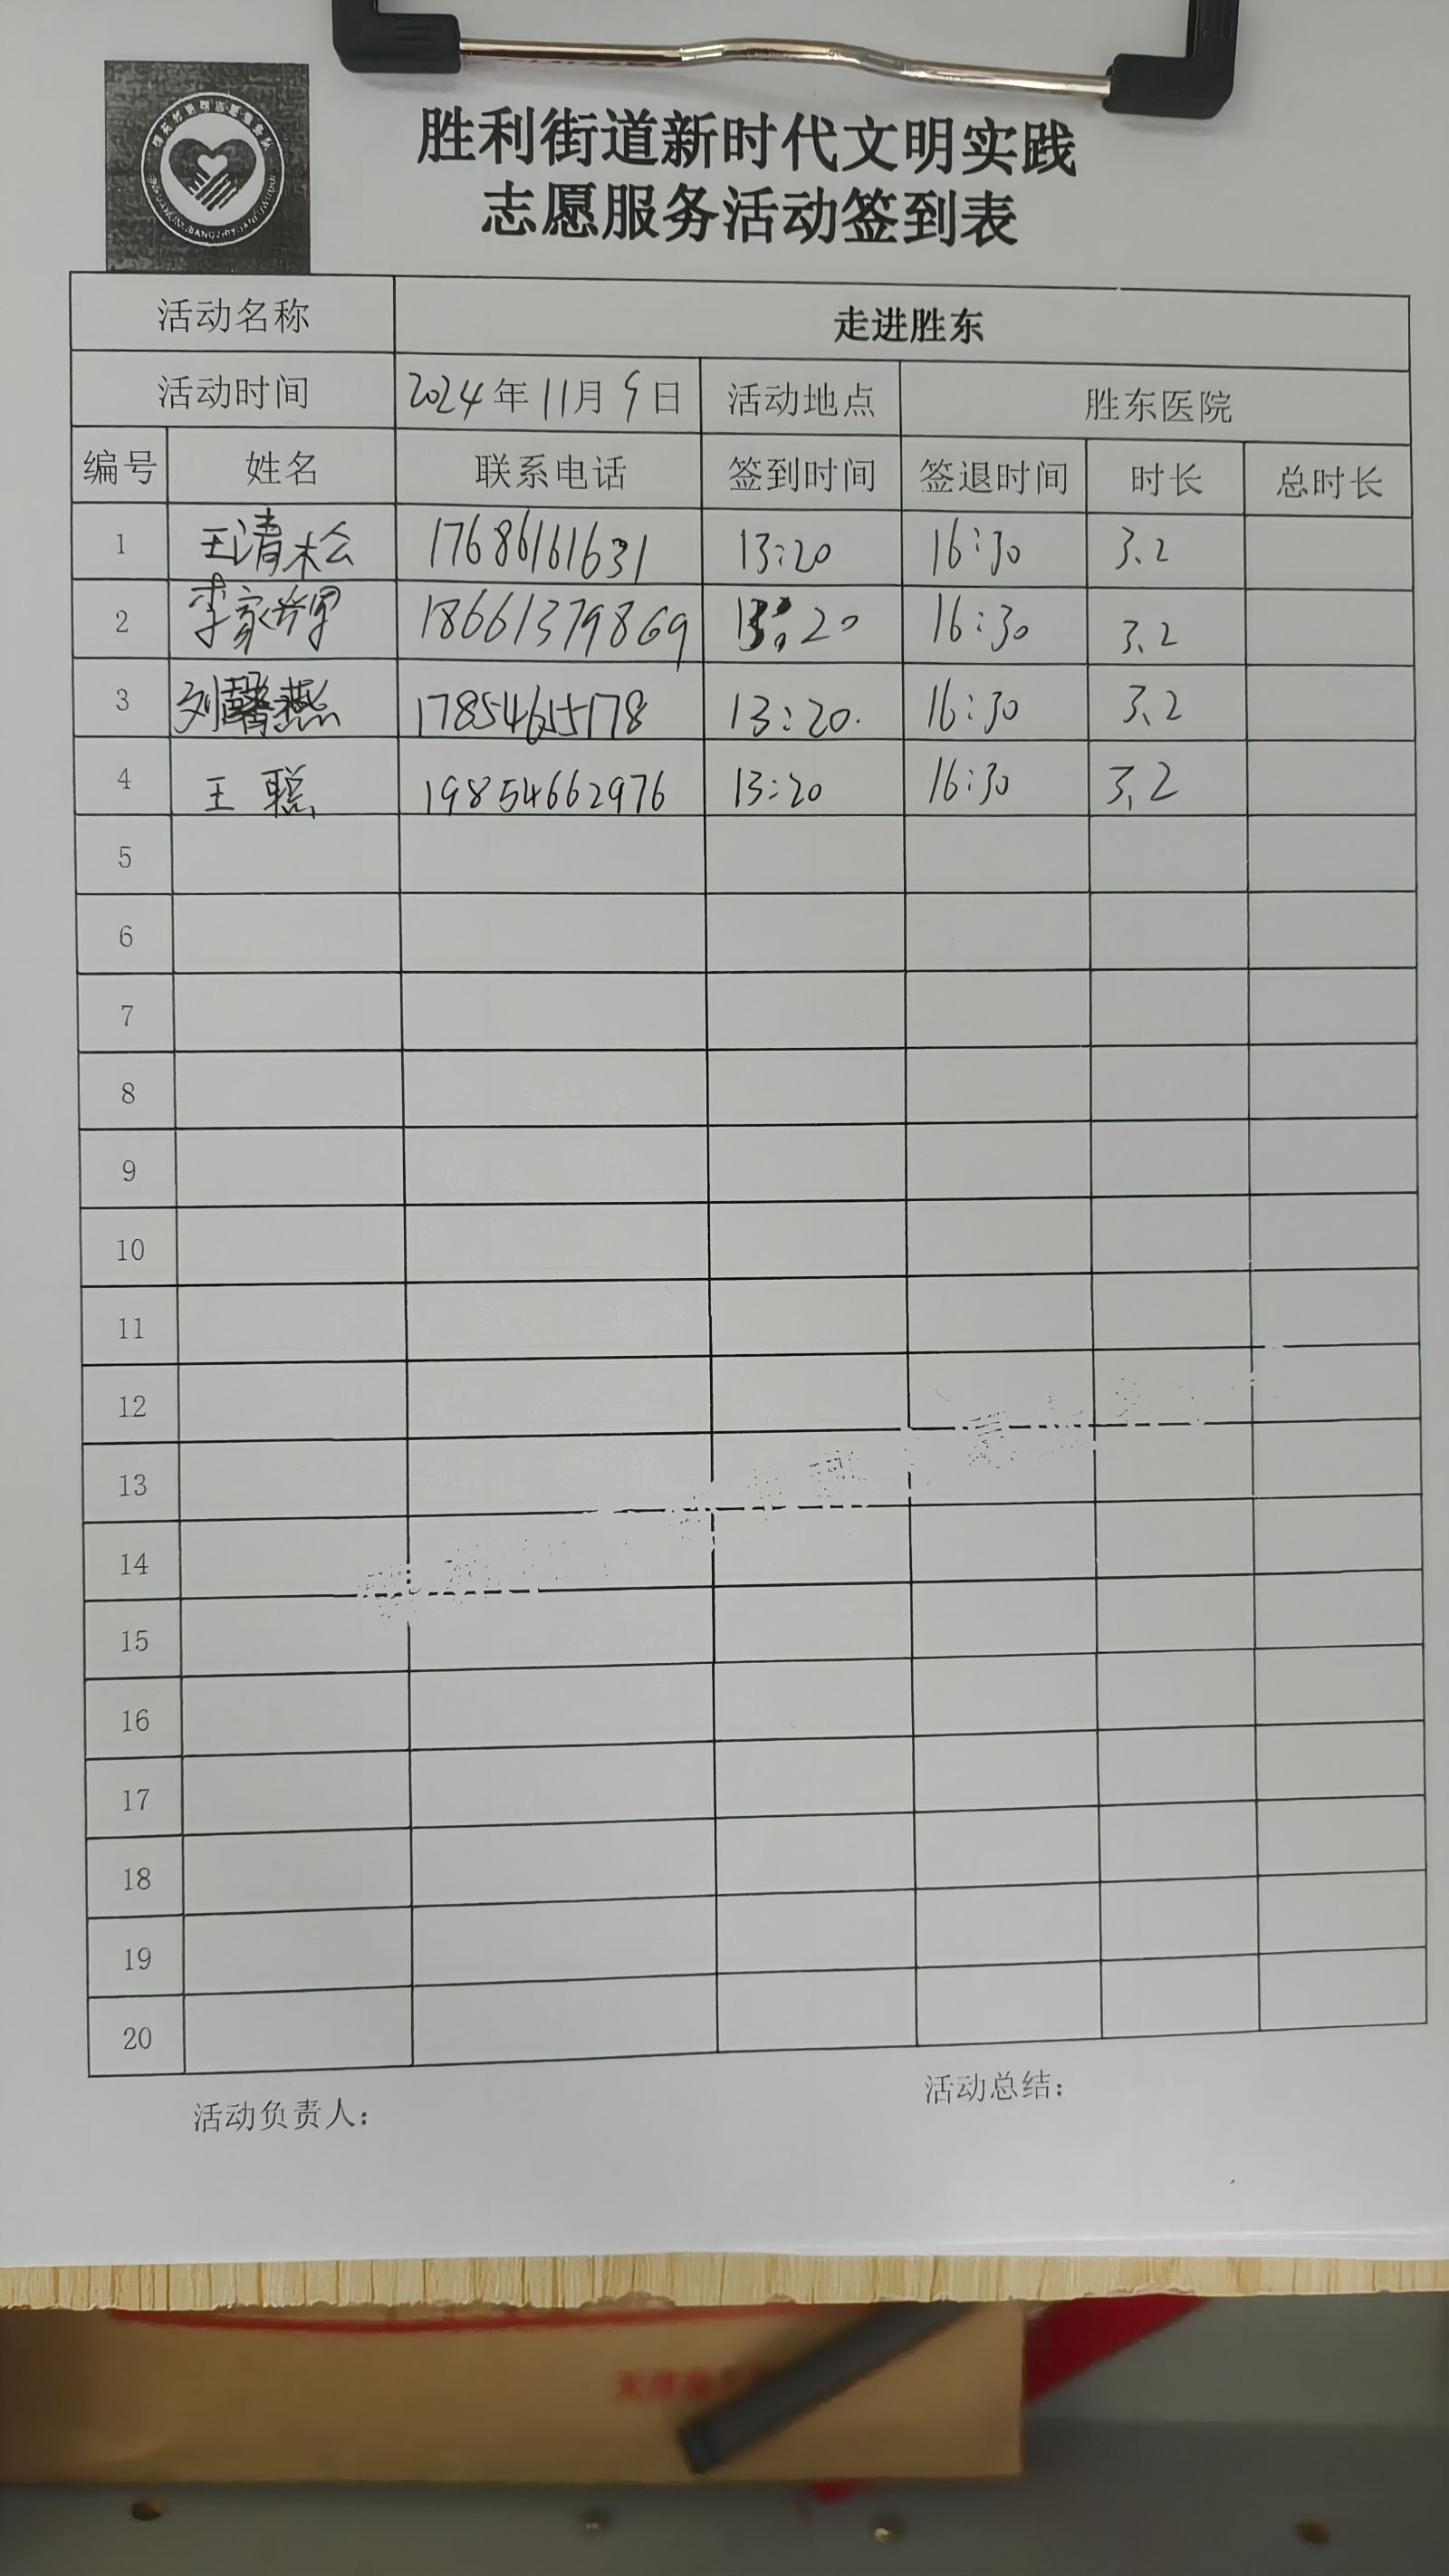 胜利街道新时代文明实践
志愿服务活动签到表
活动名称 走进胜东
活动时间 2024年11月9日 活动地点 胜东医院
编号 姓名 联系电话 签到时间 签退时间 时长 总时长
1 王清松 17686161631 13:20 16:30 3.2
2 李家辉 18661379869 13:20 16:30 3.2
3 刘馨燕 13:20. 16:30 3.2
4 王聪 19854662976 13:20 16:30 3.2
5
6
7
8
9
10
11
12
13
14
15
16
17
18
19
20
活动负责人： 活动总结：